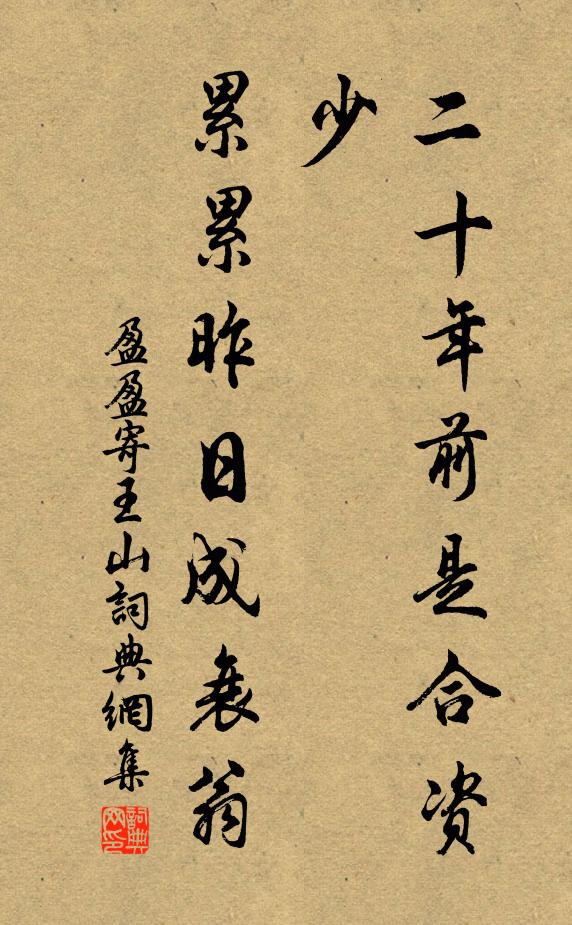 二十年前是合资
少
累累昨日成衰翁
盈盈寄王山詞典網集
詞典
网印